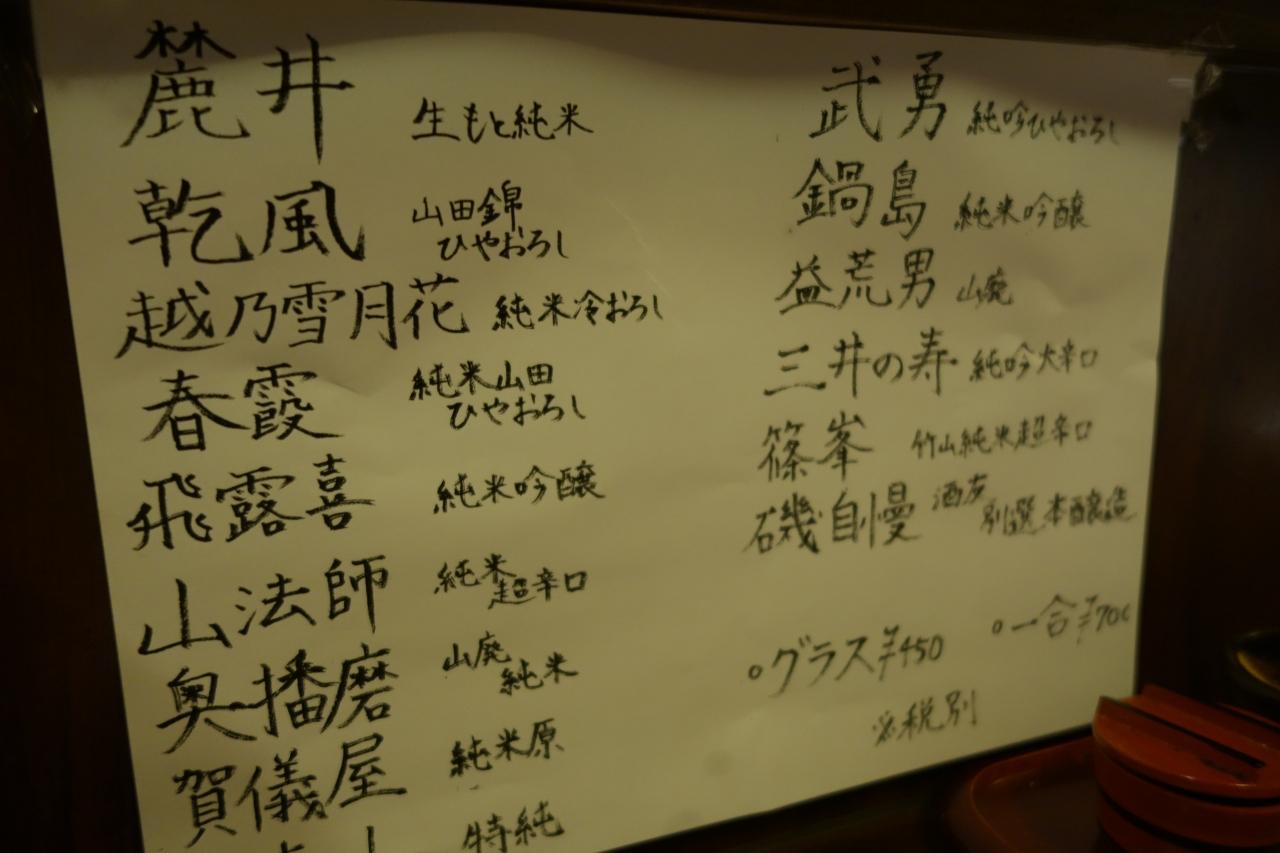 麓井 生もと純米
乾風 山田錦
ひやおろし
越乃雪月花 純米冷おろし
春霞 純米山田
ひやおろし
飛露喜 純米吟醸
山法師 純米
超辛口
奥播磨 山廃
純米
賀儀屋 純米原
特純
武勇 純吟ひやおろし
鍋島 純米吟醸
益荒男 山廃
三井の寿 純吟大辛口
篠峯 竹山純米超辛口
磯自慢 酒友
別選本醸造
○グラス¥450 ○一合¥700
※税別